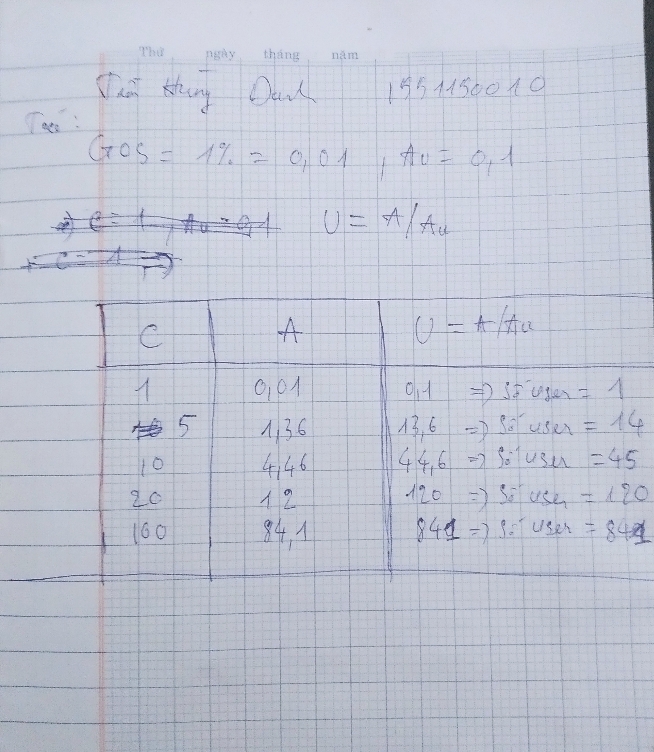 Thứ ngày tháng năm
Trần Hưng Danh 1551150010
GOS = 1% = 0,01 , Au = 0,1
=> C = 1 , Au = 0,1 U = A/Au
C = 1
C A U = A/Au
1 0,01 0,1 => Số user = 1
5 1,36 13,6 => Số user = 14
10 4,46 44,6 => Số user = 45
20 12 120 => Số user = 120
100 84,1 841 => Số user = 841